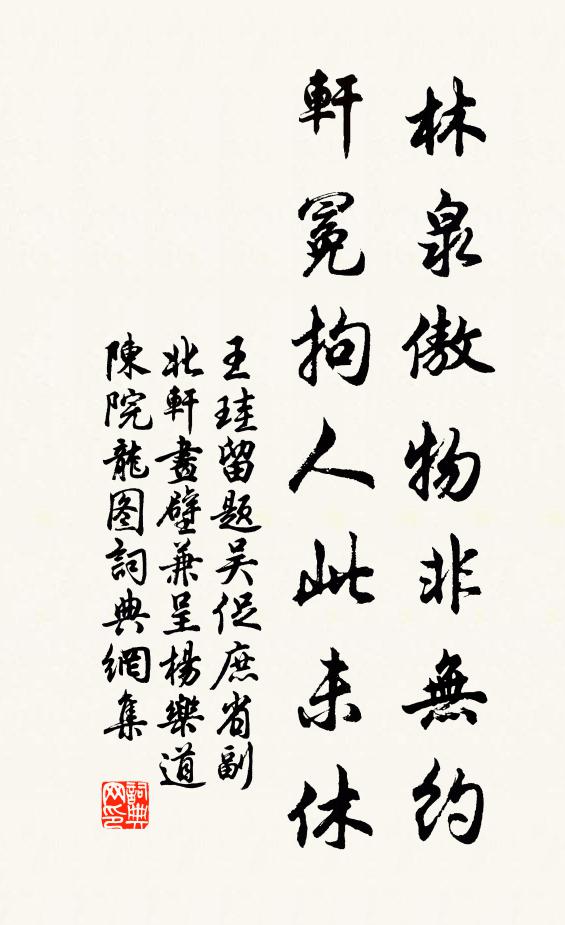 林泉傲物非無約
軒冕拘人此未休
王珪留题吴促庶省副
北軒畫壁兼呈楊樂道
陳院龍图詞典網集
詞典网印